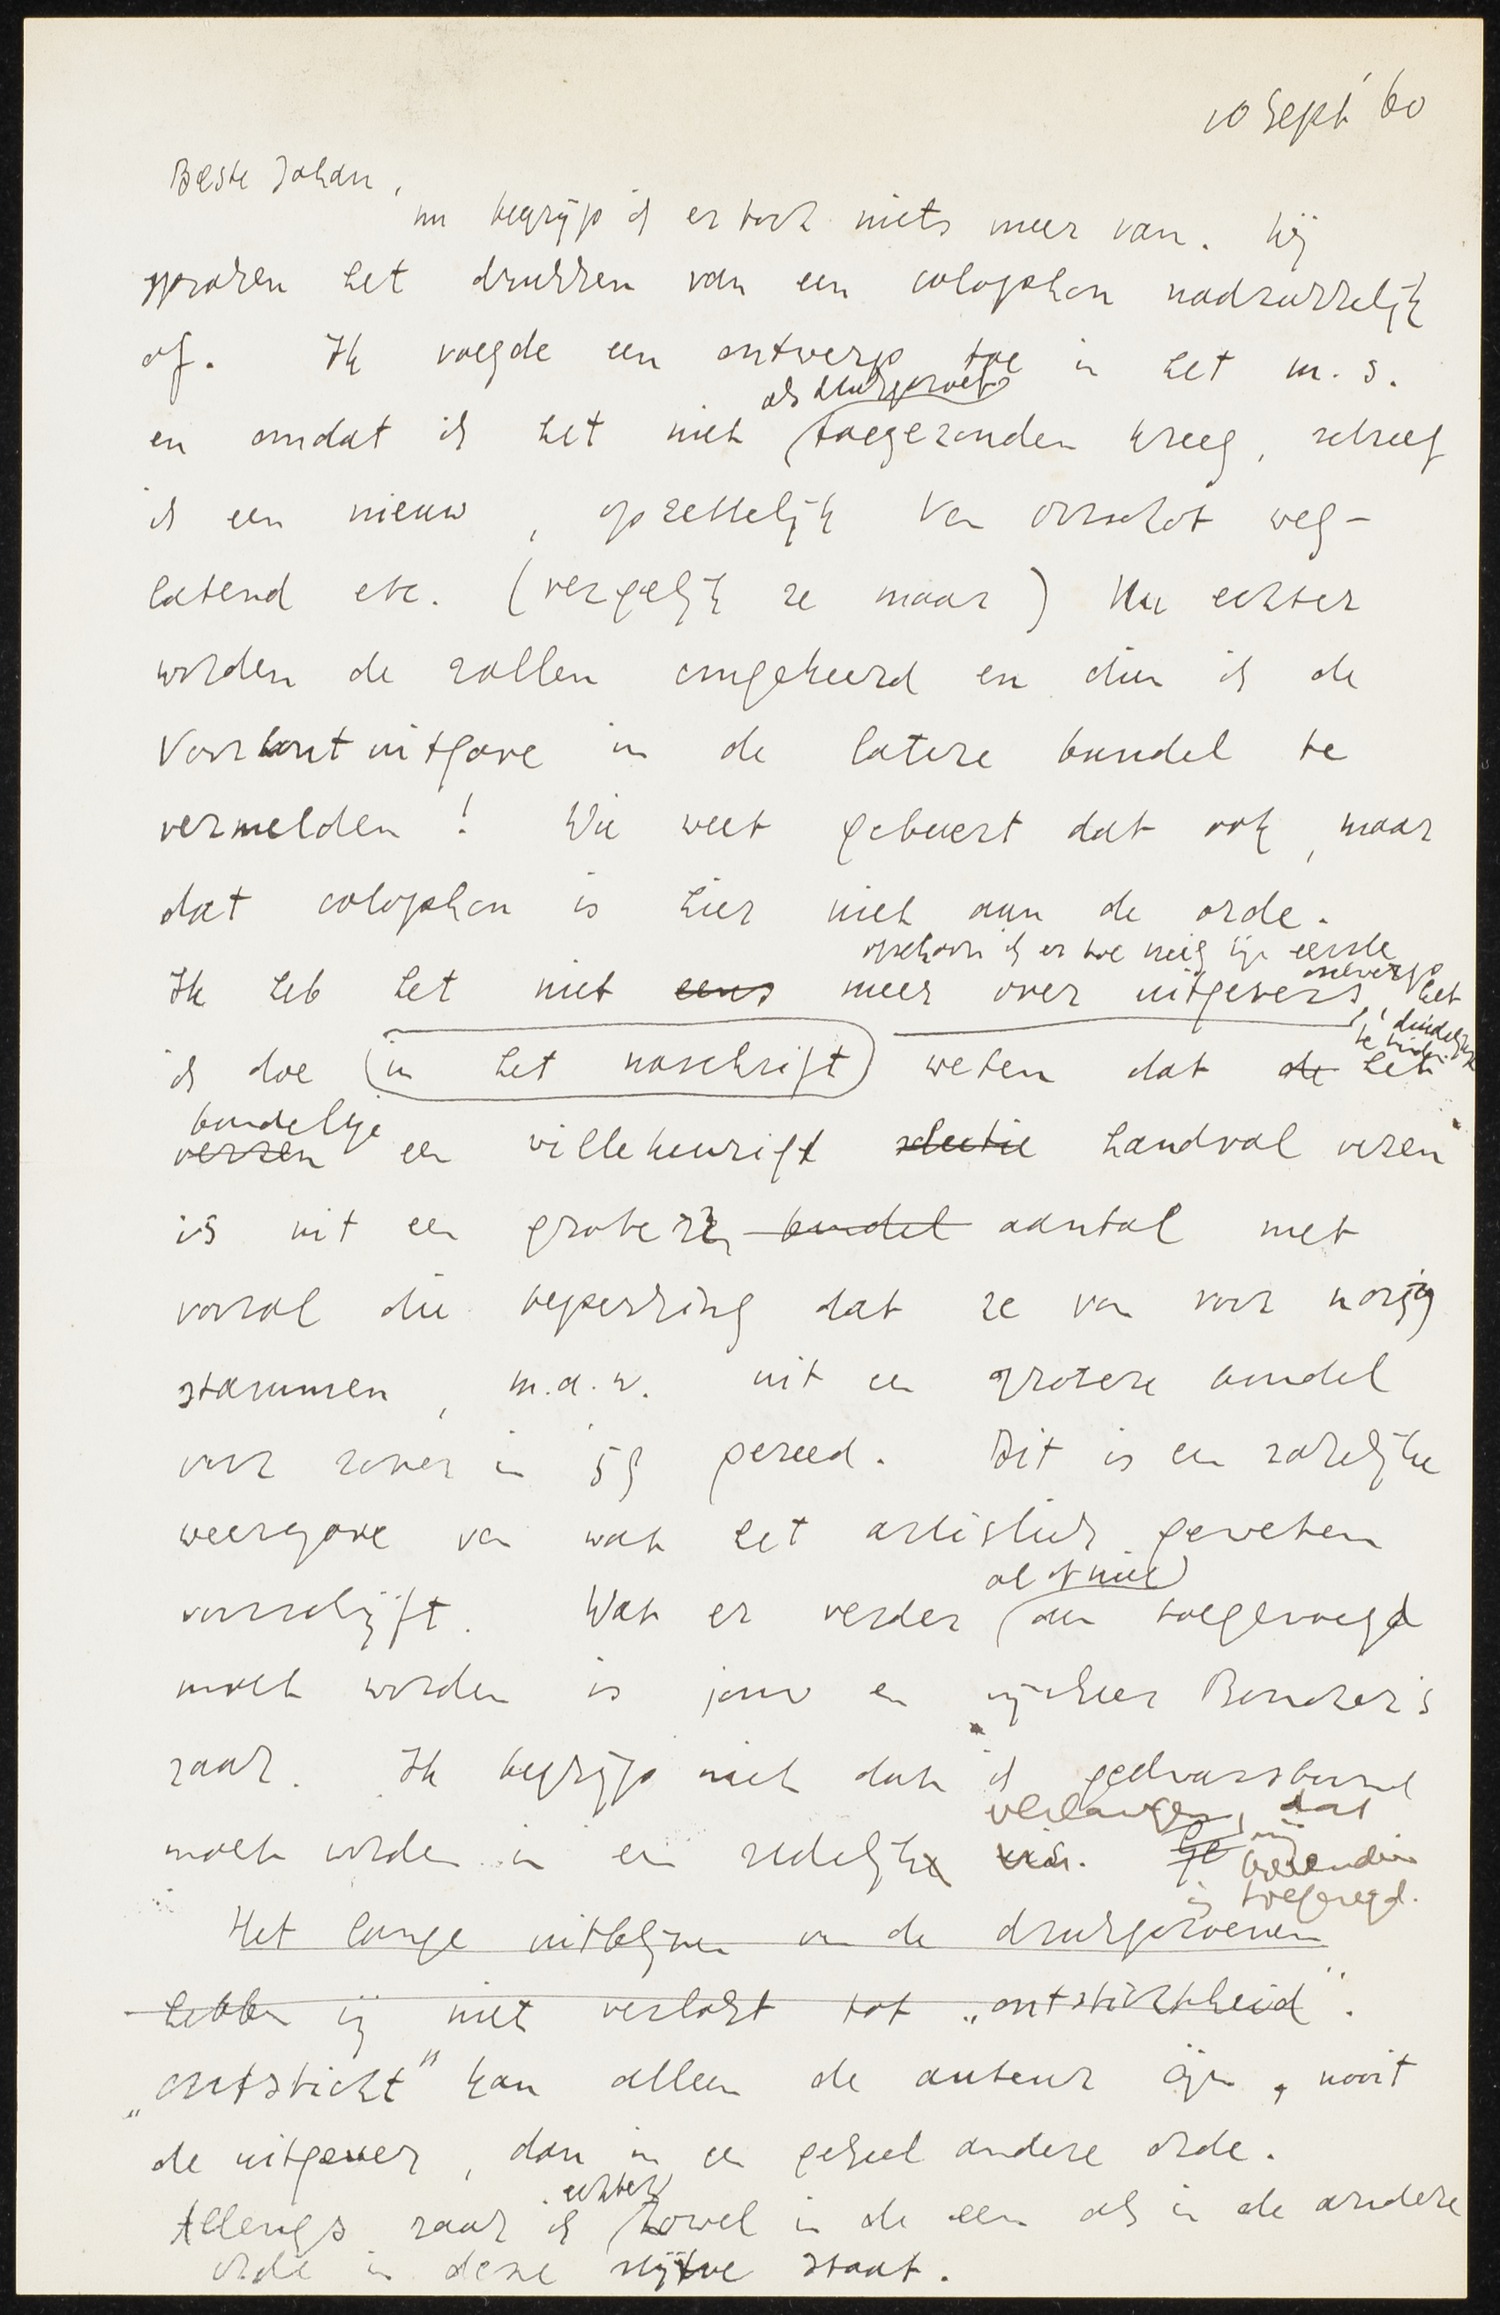 10 Sept '60
Beste Johan,
nu begrijp ik er toch niets meer van. Wij
spraken het drukken van een colophon nadrukkelijk
af. Ik voegde een ontwerp toe in het m.s.
als drukproef
en omdat ik het niet toegezonden kreeg, schreef
ik een nieuw, opzettelijk Van Oorschot weg-
latend etc. (vergelijk ze maar) Nu echter
worden de rollen omgekeerd en dien ik de
Voorhout uitgave in de latere bundel te
vermelden! Wie weet gebeurt dat ook, maar
dat colophon is hier niet aan de orde.
ofschoon ik er toe neig mijn eerste
ontwerp
Ik heb het niet eens meer over uitgevers, het
duidelijker
te vinden
ik doe in het naschrift weten dat de het
bundeltje
verzen een willekeurige selectie handvol verzen
is uit een groter bundel aantal met
vooral die beperking dat ze van voor
stammen, m.a.w. uit een grotere bundel
voor zover in '59 gereed. Dit is een zakelijke
weergave van wat het artistiek geweten
voorschrijft.
al of niet
Wat er verder aan toegevoegd
moet worden is jouw en mijnheer 
zaak. Ik begrijp niet dat ik gedwarsboomd
verlangen, dat
moet worden in een redelijk
mij bovendien
is toegezegd.
Het lange uitblijven van de drukproeven
hebben mij niet verlokt tot „ontstichtheid".
„ontsticht" kan alleen de auteur zijn, nooit
de uitgever, dan in een geheel andere orde.
echter
Allengs raak ik zowel in de een als in de andere
orde in deze staat.